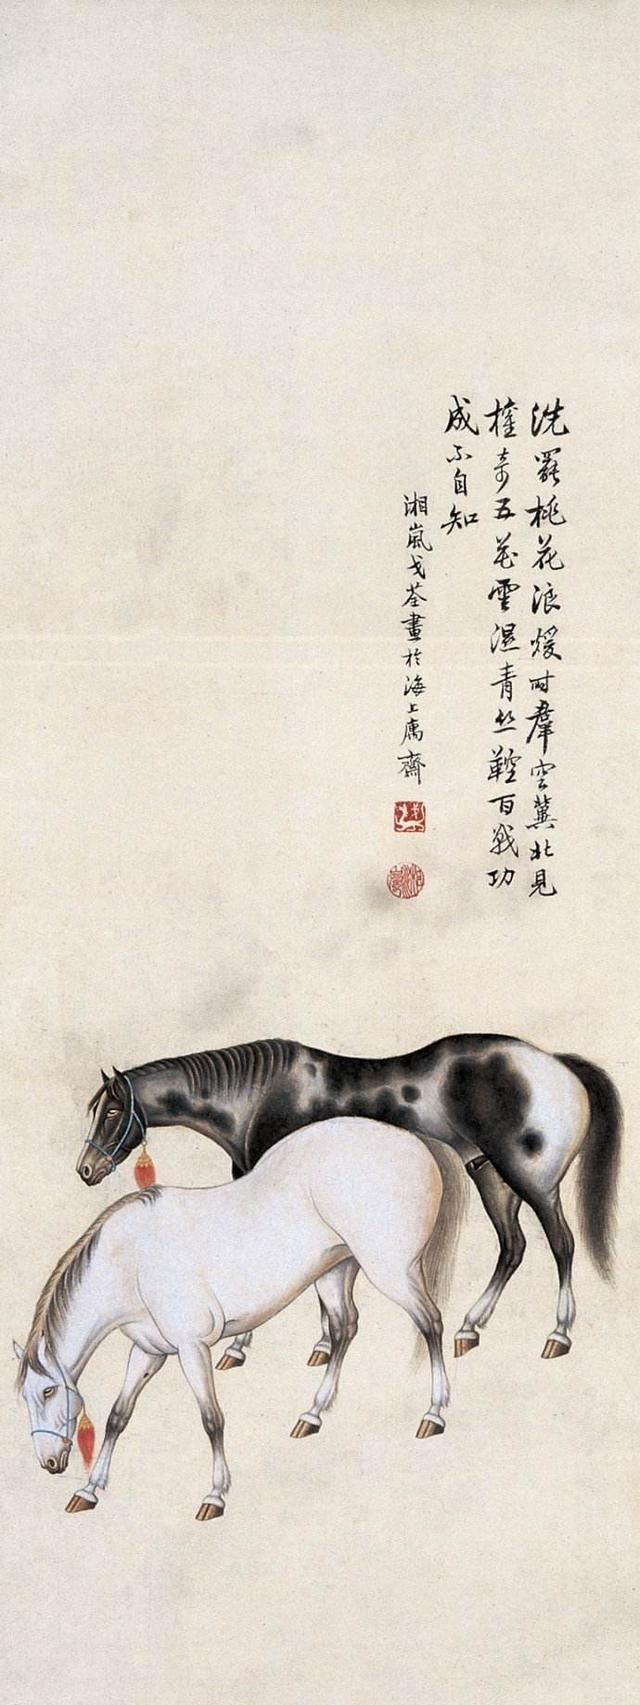 洗罷桃花浪煖時羣空冀北見
權奇五花雲濕青絲鞚百戰功
成不自知
湘嵐戈荃畫於海上庽齋